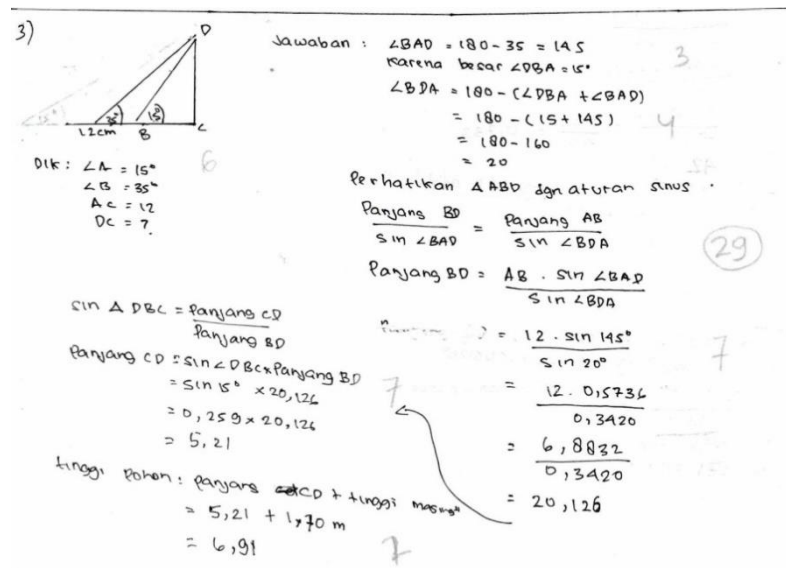 3)
D
35°
15°
12cm
B
C
Dik : ∠A = 15°
∠B = 35°
AC = 12
DC = ?
6
Jawaban : ∠BAD = 180 - 35 = 145
3
Karena besar ∠DBA = 15°
∠BDA = 180 - (∠DBA + ∠BAD)
= 180 - (15 + 145)
4
= 180 - 160
= 20
Perhatikan △ABD dgn aturan sinus.
Panjang BD / sin ∠BAD = Panjang AB / sin ∠BDA
29
Panjang BD = AB . sin ∠BAD / sin ∠BDA
= 12 . sin 145° / sin 20°
7
= 12 . 0,5736 / 0,3420
= 6,8832 / 0,3420
= 20,126
sin △ DBC = Panjang CD / Panjang BD
Panjang CD = sin ∠DBC x Panjang BD
= sin 15° x 20,126
7
= 0,259 x 20,126
= 5,21
tinggi pohon : Panjang CD + tinggi masing"
= 5,21 + 1,70 m
= 6,91
7